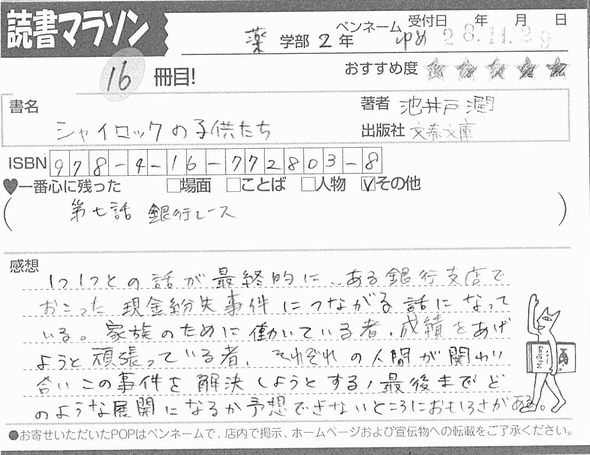 読書マラソン
薬 学部 2 年 ペンネーム ゆめ 受付日 28.11.29 年 月 日
16 冊目!
おすすめ度 ★★★★★
書名 シャイロックの子供たち
著者 池井戸潤
出版社 文春文庫
ISBN 978-4-16-772803-8
♥一番心に残った □場面 □ことば □人物 ☑その他
(第七話 銀行レース)
感想
1つ1つの話が最終的に、ある銀行支店で
おこった現金紛失事件につながる話になって
いる。家族のために働いている者、成績をあげ
ようと頑張っている者、それぞれの人間が関わり
合いこの事件を解決しようとする!最後までど
のような展開になるか予想できないところにおもしろさがある。
●お寄せいただいたPOPはペンネームで、店内で掲示、ホームページおよび宣伝物への転載をご了承ください。